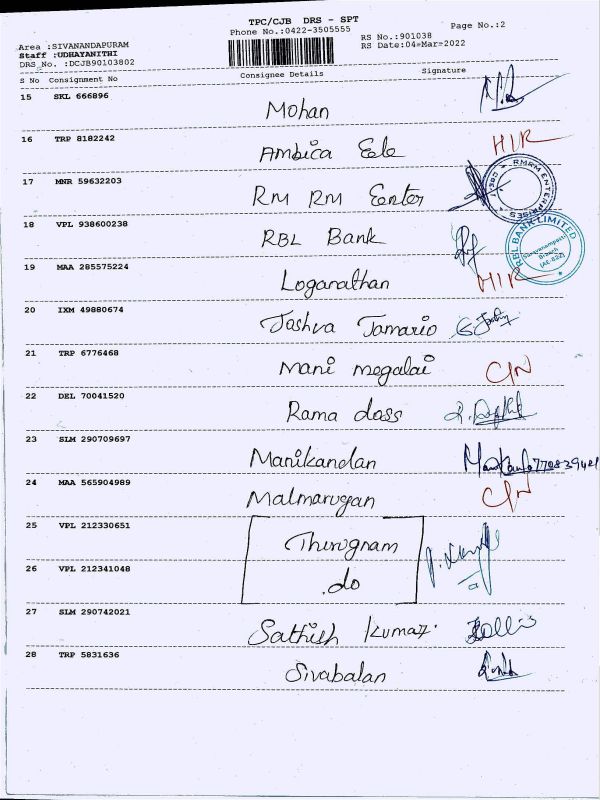 TPC/CJB DRS - SPT
Phone No.:0422-3505555
Page No.:2
Area :SIVANANDAPURAM
RS No.:901038
Staff :UDHAYANITHI
RS Date:04-Mar-2022
DRS No. :DCJB90103802
S No Consignment No Consignee Details Signature
15 SKL 666896 Mohan
16 TRP 8182242 Ambica Ele HIR
17 MNR 59632203 RM RM Eenter
RMRM ENTERPRISES
18 VPL 938600238 RBL Bank
RBL BANK LIMITED
Saravanampatti
Branch
19 MAA 285575224 Loganathan HIR
20 IXM 49880674 Jashva Tamario
21 TRP 6776468 Mani megalai C/N
22 DEL 70041520 Rama dass
23 SLM 290709697 Manikandan
24 MAA 565904989 Malmarugan C/N
25 VPL 212330651 Thirugnam
26 VPL 212341048 .do
27 SLM 290742021 Sathish Kumar.
28 TRP 5831636 Sivabalan